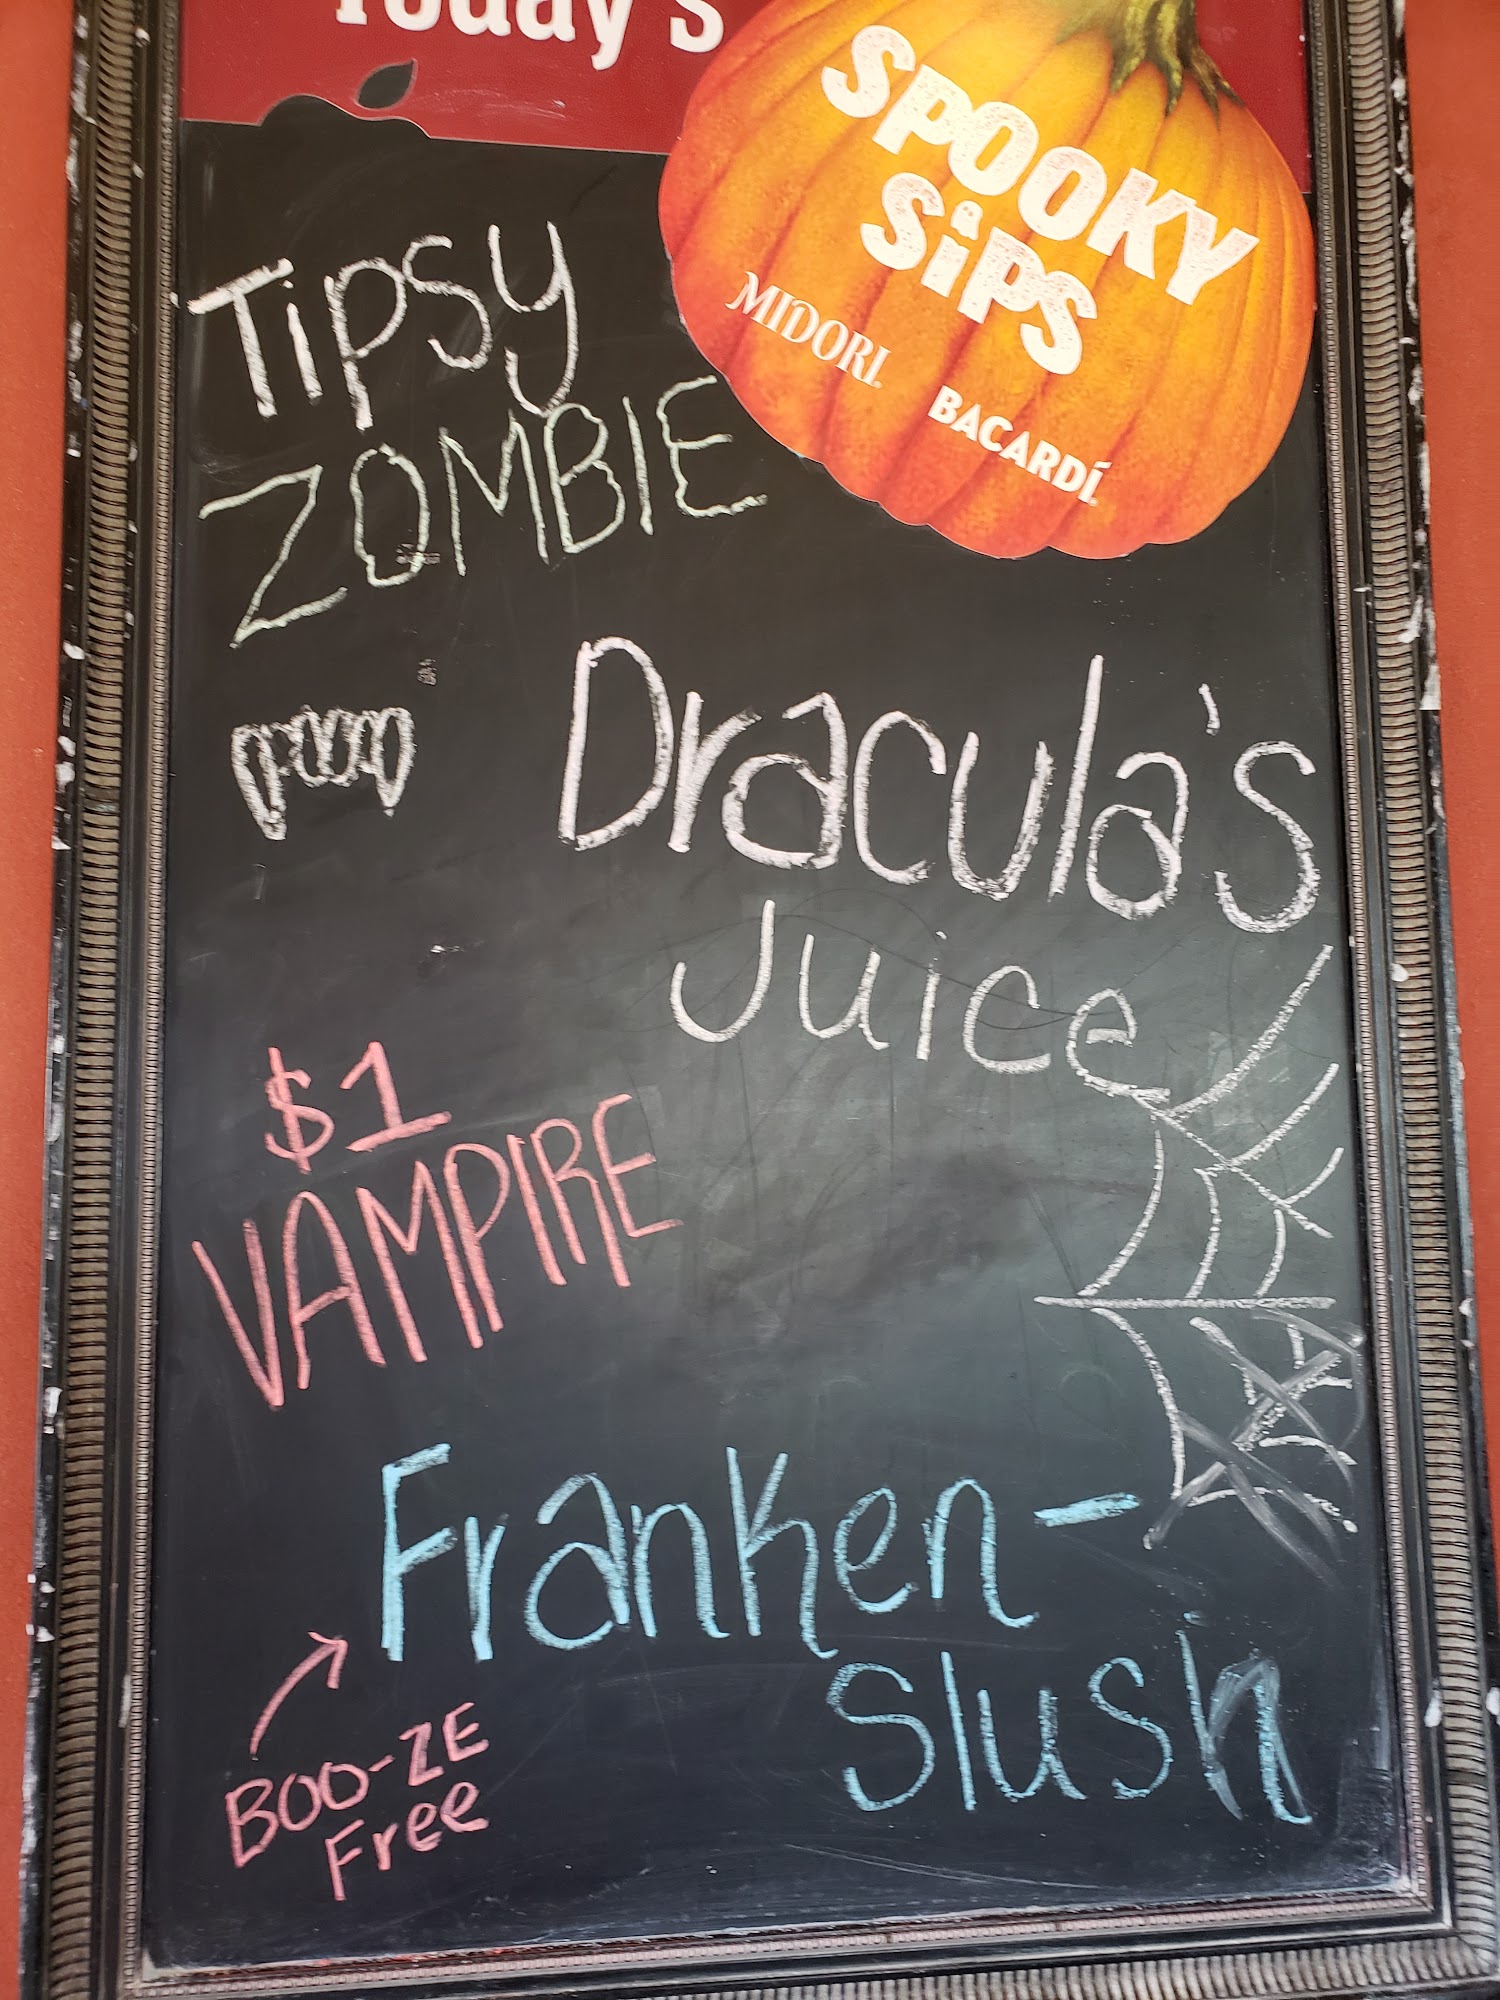 Today's
SPOOKY
SiPS
MIDORI.
BACARDÍ.
Tipsy
ZOMBIE
Dracula's
Juice
$1
VAMPIRE
Franken-
Slush
BOO-ZE
Free